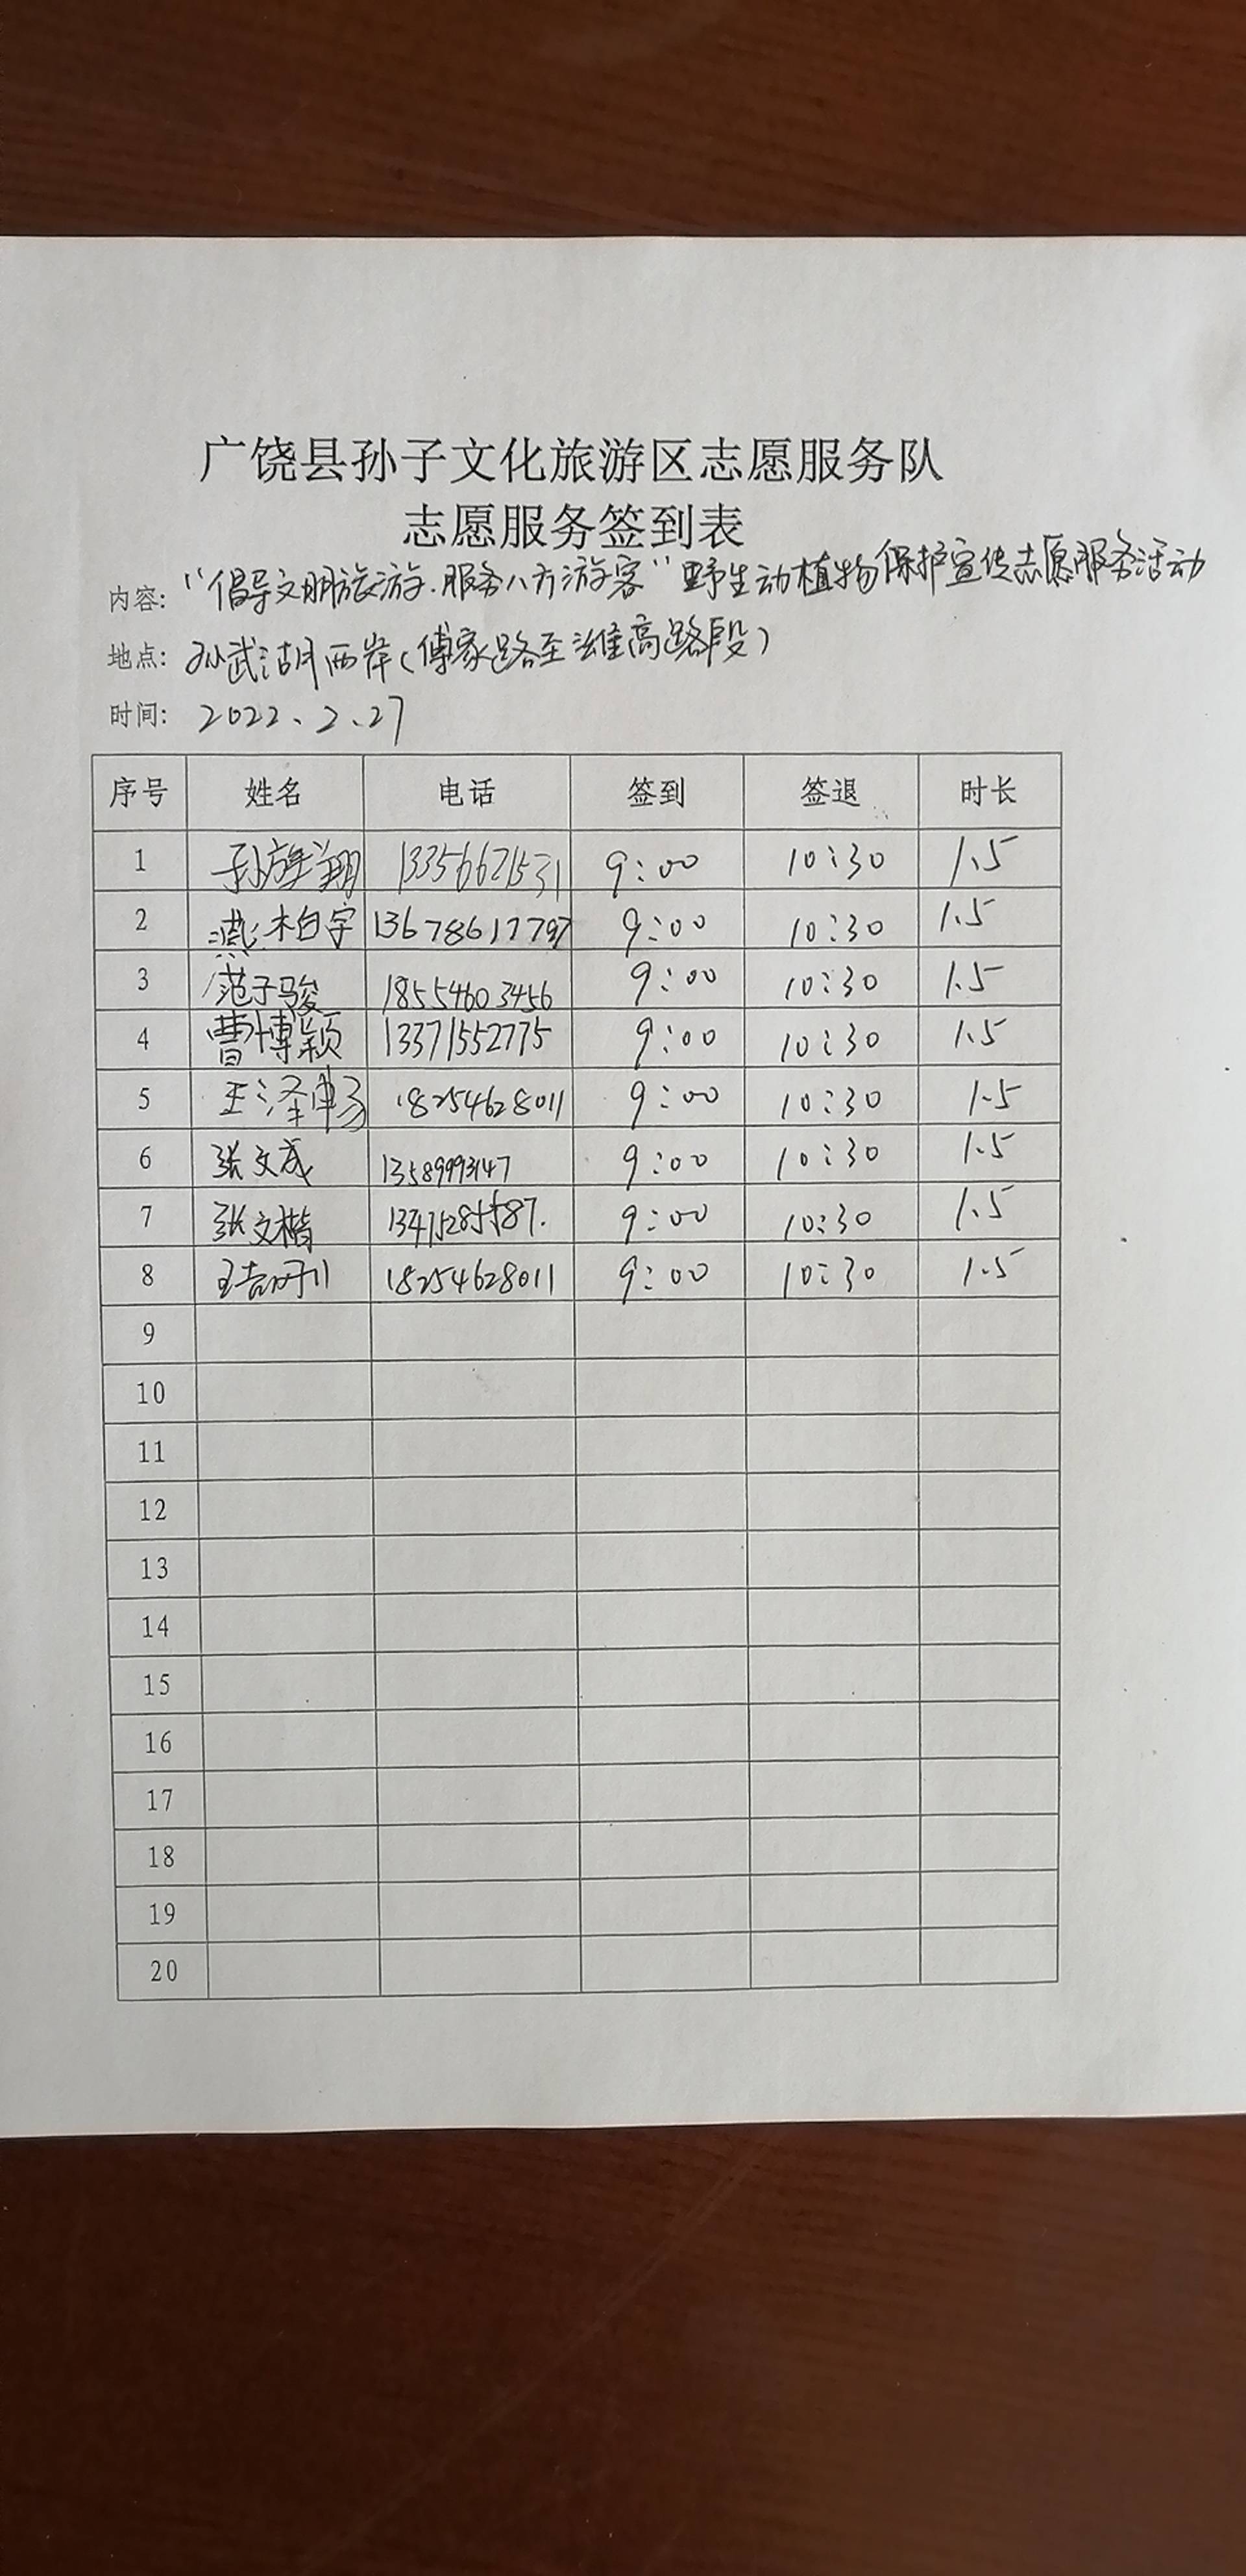 广饶县孙子文化旅游区志愿服务队
志愿服务签到表
内容: “倡导文明旅游.服务八方游客”野生动植物保护宣传志愿服务活动
地点: 孙武湖西岸(傅家路至潍高路段)
时间: 2022、2、27
序号 姓名 电话 签到 签退 时长
1 孙旌翔 13356621531 9:00 10:30 1.5
2 燕柏宇 13678617797 9:00 10:30 1.5
3 范子骏 18554603456 9:00 10:30 1.5
4 曹博颖 13371552775 9:00 10:30 1.5
5 王泽畅 18254628011 9:00 10:30 1.5
6 张文成 13589993147 9:00 10:30 1.5
7 张文楷 13475285587. 9:00 10:30 1.5
8 18254628011 9:00 10:30 1.5
9
10
11
12
13
14
15
16
17
18
19
20